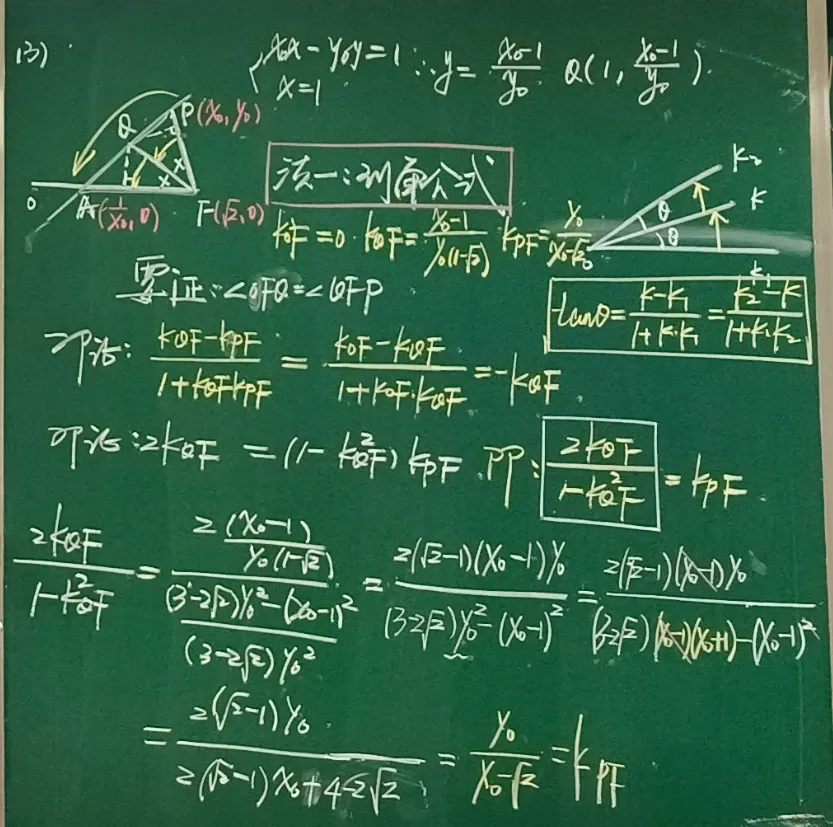 (3)
x₀x - y₀y = 1
x = 1
∴ y = (x₀-1)/y₀ Q(1, (x₀-1)/y₀).
P(x₀, y₀)
Q
O A(1/x₀, 0) F(√2, 0)
法一:到角公式
k₂
k
θ
θ
k₁
k_OF = 0 k_QF = (x₀-1)/(y₀(1-√2)) k_PF = y₀/(x₀-√2)
要证:∠OFQ=∠QFP
tanθ = (k-k₁)/(1+k·k₁) = (k₂-k)/(1+k₁k₂)
即证: (k_QF - k_PF)/(1+k_QF k_PF) = (k_OF - k_QF)/(1+k_OF·k_QF) = -k_QF
即证:2k_QF = (1-k²_QF) k_PF 即: 2k_QF/(1-k²_QF) = k_PF
2k_QF/(1-k²_QF) = (2(x₀-1)/(y₀(1-√2)))/(((3-2√2)y₀²-(x₀-1)²)/((3-2√2)y₀²)) = 2(√2-1)(x₀-1)y₀/((3-2√2)y₀²-(x₀-1)²) = 2(√2-1)(x₀-1)y₀/((3-2√2)(x₀-1)(x₀+1)-(x₀-1)²)
= 2(√2-1)y₀/(2(√2-1)x₀+4-2√2) = y₀/(x₀-√2) = k_PF